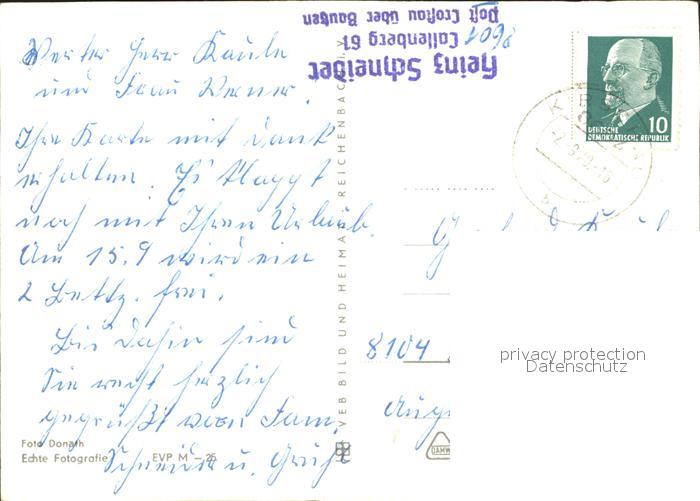 Werter Herr Kaule
und Frau Werner.
Ihre Karte mit Dank
erhalten. Es klappt
noch mit Ihren Urlaub.
Am 15.9 wird ein
2 Bettz. frei.
Bis dahin sind
Sie recht herzlich
gegrüßt von Fam.
Schneider u.
Foto Donath
Echte Fotografie EVP M –25
VEB BILD UND HEIMAT REICHENBACH i. V.
Heinz Schneider
8601 Callenberg 61
Post Crostau über Bautzen
DEUTSCHE
DEMOKRATISCHE REPUBLIK
10
8104
privacy protection
Datenschutz